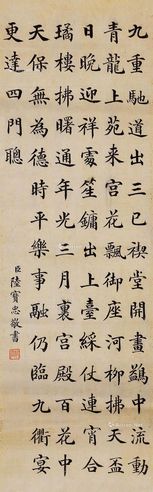 九重馳道出三巳禊堂開畫鷁中流動
青龍上苑来宮花飄御座河柳拂天盃
日晚迎祥處笙鏞出上臺綵仗連宵合
璚樓拂曙通年光三月裏宮殿百花中
天保無為德時平樂事融仍臨九衢宴
更達四門聰
臣陸寶忠敬書